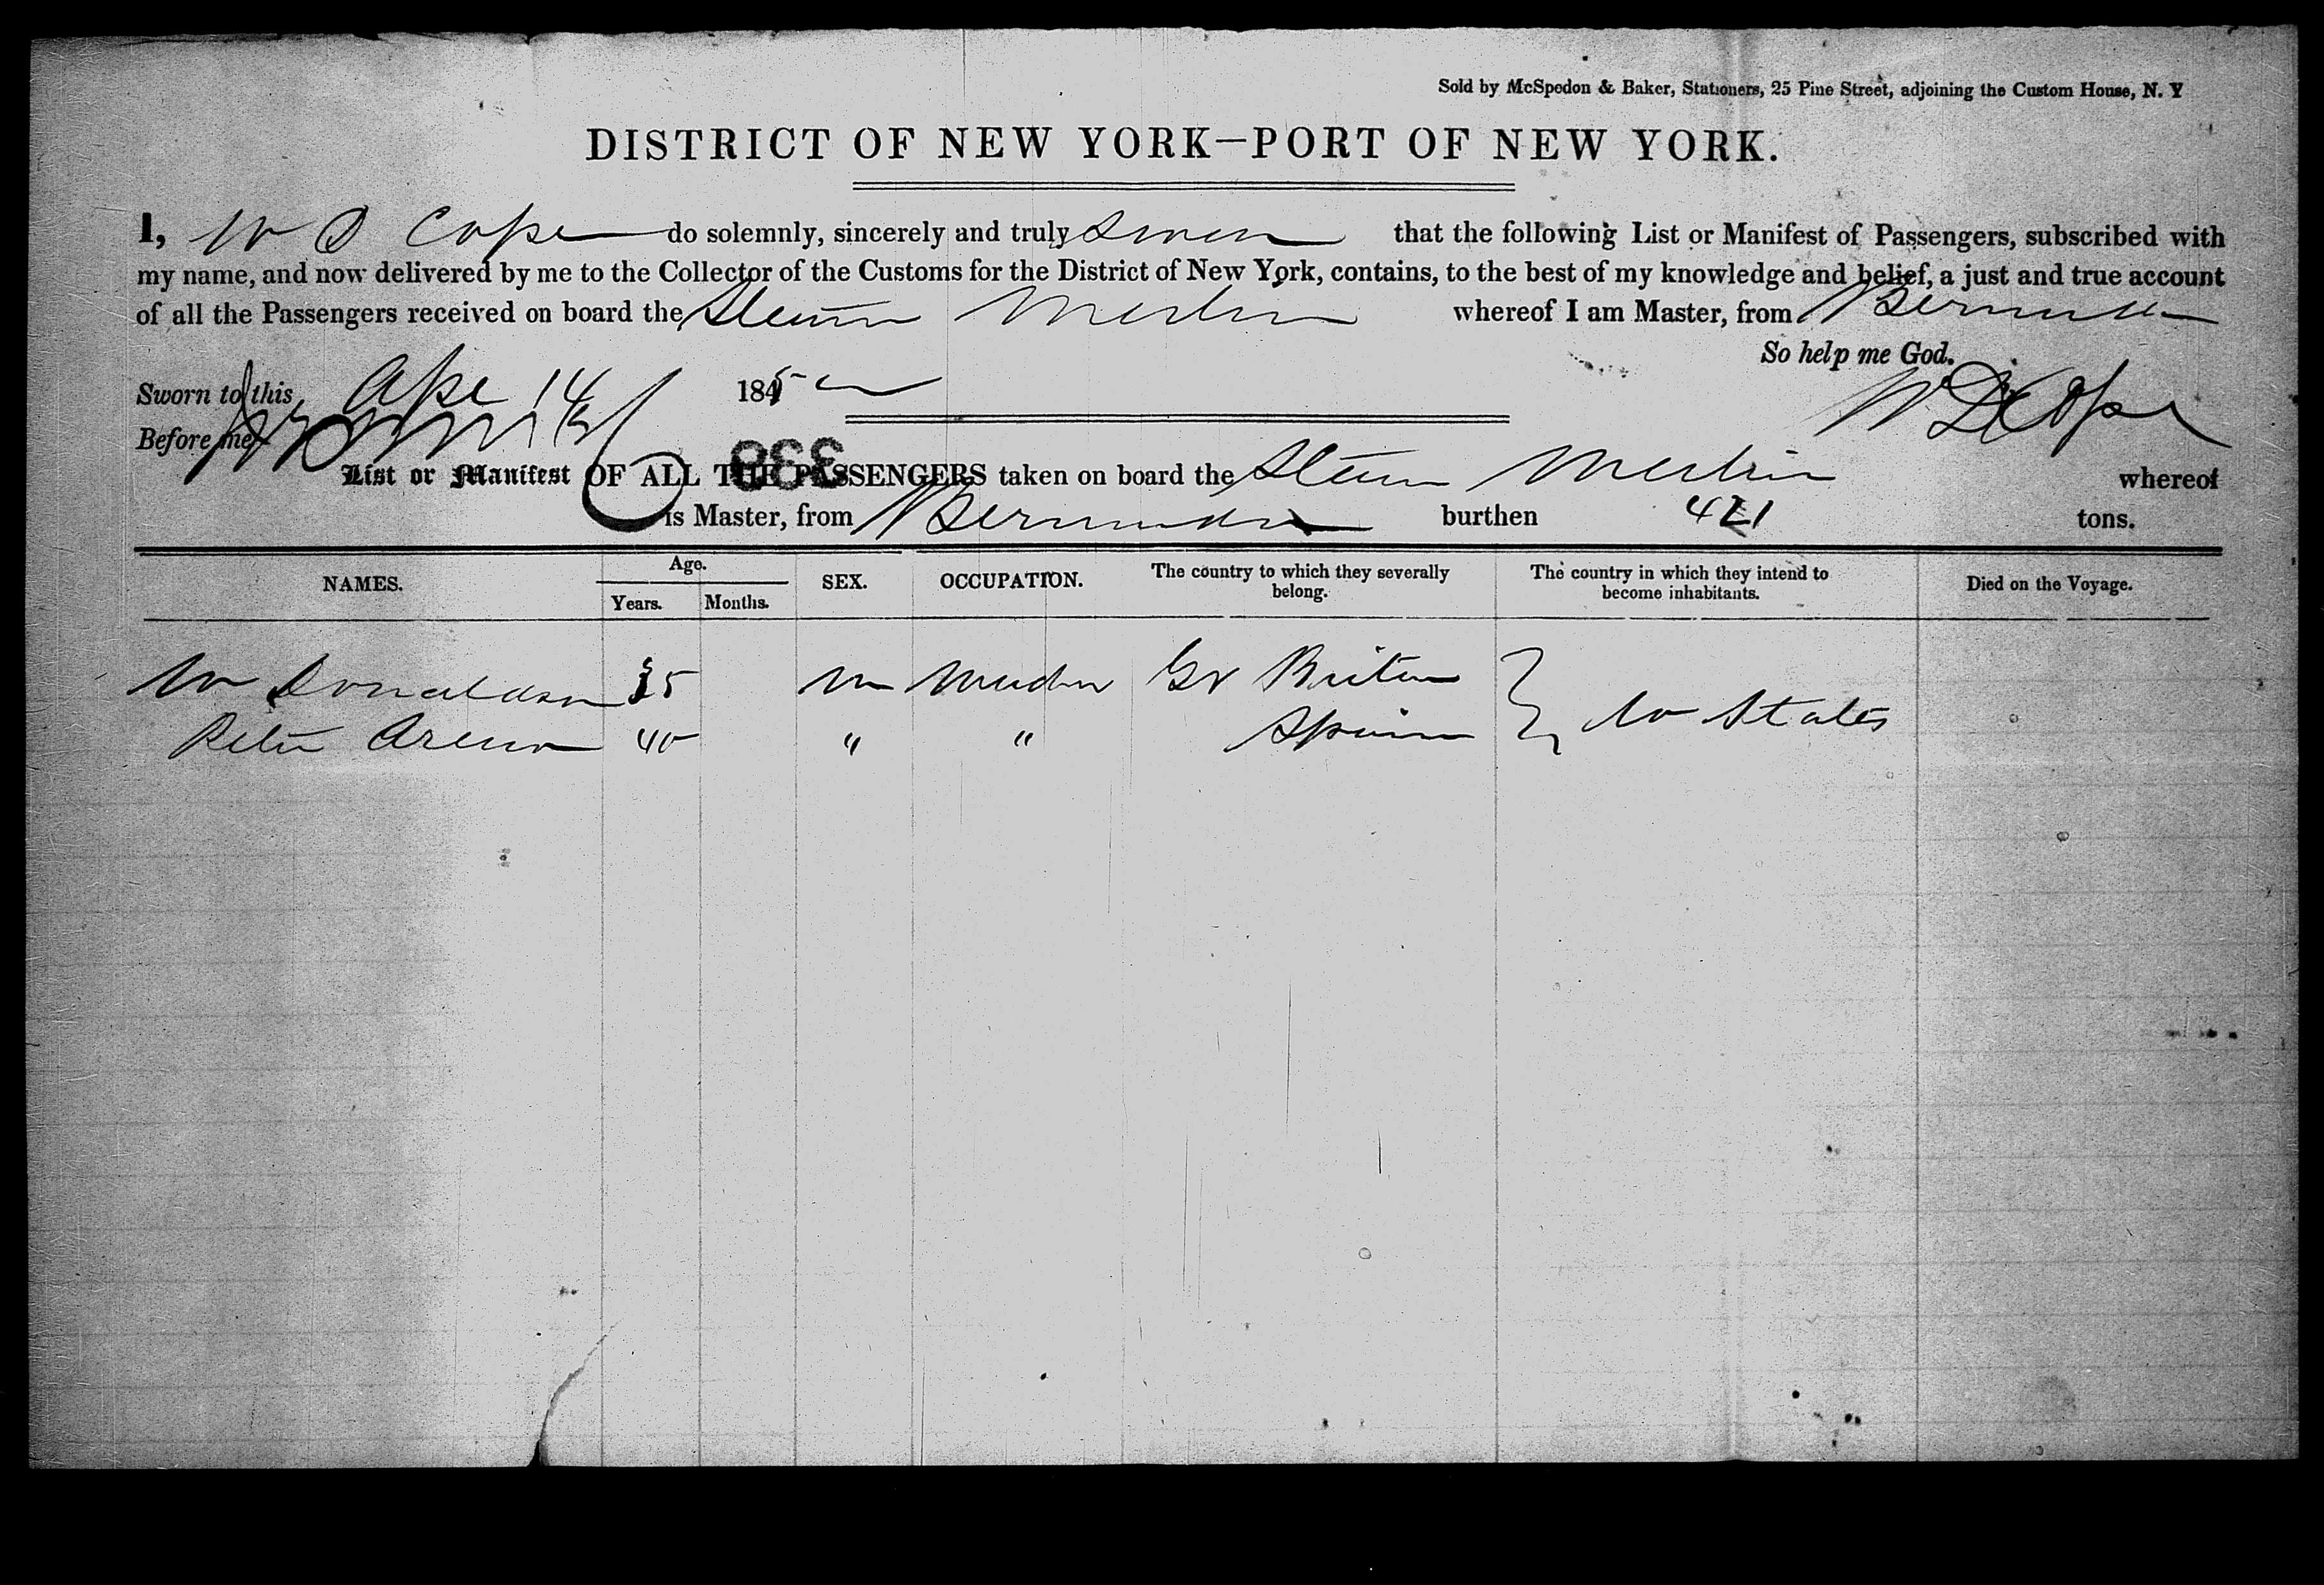 Sold by McSpedon & Baker, Stationers, 25 Pine Street, adjoining the Custom House, N. Y
DISTRICT OF NEW YORK—PORT OF NEW YORK.
I, W D Cope do solemnly, sincerely and truly swear that the following List or Manifest of Passengers, subscribed with
my name, and now delivered by me to the Collector of the Customs for the District of New York, contains, to the best of my knowledge and belief, a just and true account
of all the Passengers received on board the Steam Merlin whereof I am Master, from Bermuda
So help me God.
Sworn to this Apl 14 185
W D Cope
Before me
338
List or Manifest OF ALL THE PASSENGERS taken on board the Steam Merlin whereof
is Master, from Bermuda burthen tons.
NAMES. Age. Years. Months. SEX. OCCUPATION. The country to which they severally belong. The country in which they intend to become inhabitants. Died on the Voyage.
W Donaldson 35 M Gr Britain
Peter 40 " " Spain
U States